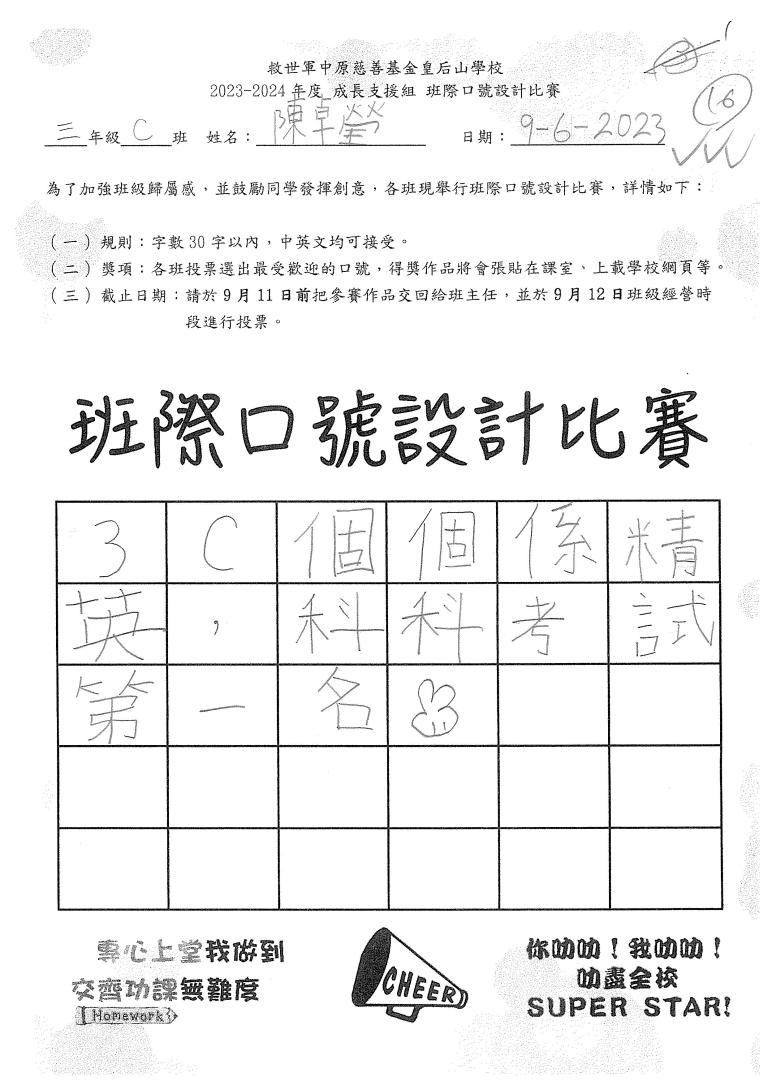 救世軍中原慈善基金皇后山學校
2023-2024 年度 成長支援組 班際口號設計比賽
三年級C班 姓名：陳卓瑩 日期：9-6-2023
16
為了加強班級歸屬感，並鼓勵同學發揮創意，各班現舉行班際口號設計比賽，詳情如下：
（一）規則：字數 30 字以內，中英文均可接受。
（二）獎項：各班投票選出最受歡迎的口號，得獎作品將會張貼在課室、上載學校網頁等。
（三）截止日期：請於 9 月 11 日前把參賽作品交回給班主任，並於 9 月 12 日班級經營時
段進行投票。
班際口號設計比賽
3C個個係精
英，科科考試
第一名
專心上堂我做到
交齊功課無難度
Homework
CHEER
你叻叻！我叻叻！
叻盡全校
SUPER STAR!